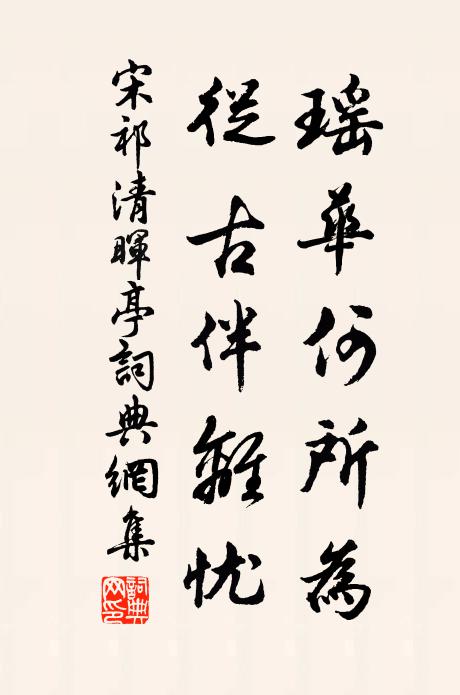 瑤華何所為
從古伴離忧
宋祁清暉亭詞典網集
詞典网印